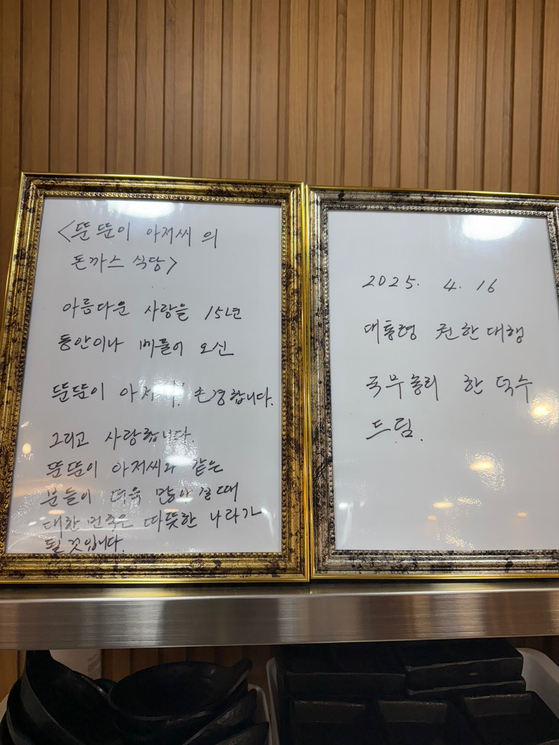 <뚠뚠이 아저씨의
돈까스 식당>
아름다운 사랑을 15년
동안이나 베풀어 오신
뚠뚠이 아저씨 존경합니다.
그리고 사랑합니다.
뚠뚠이 아저씨와 같은
분들이 더욱 많아질 때
대한민국은 따뜻한 나라가
될 것입니다.
2025. 4. 16
대통령 권한대행
국무총리 한덕수
드림.